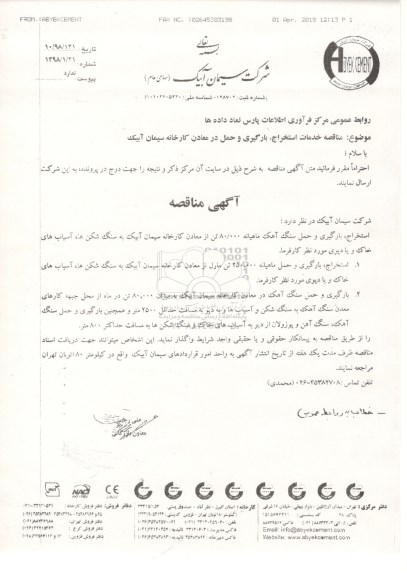 FROM: ABYEKCEMENT FAX NO. :02645303198 01 Apr. 2019 12:13 P 1
تاریخ :
۱۳۹۸/۱/۲۱
پیوست ندارد
شرکت سیمان آبیک (سهامی عام)
ABYEK CEMENT
روابط عمومی مرکز فرآوری اطلاعات پارس نماد داده ها
موضوع: مناقصه خدمات استخراج، بارگیری و حمل در معادن کارخانه سیمان آبیک
با سلام ؛
احتراماً مقرر فرمائید متن آگهی مناقصه به شرح ذیل در سایت آن مرکز ذکر و نتیجه را جهت درج در پرونده به این شرکت
ارسال نمایند.
آگهی مناقصه
شرکت سیمان آبیک در نظر دارد :
استخراج، بارگیری و حمل سنگ آهک ماهیانه ۸۰/۰۰۰ تن از معادن کارخانه سیمان آبیک به سنگ شکن ها، آسیاب های
خاک و یا دپوی مورد نظر کارفرما.
۱. استخراج، بارگیری و حمل ماهیانه ۲۵/۰۰۰ تن مارل از معادن کارخانه سیمان آبیک به سنگ شکن ها، آسیاب های
خاک و یا دپوی مورد نظر کارفرما.
۲. بارگیری و حمل سنگ آهک در معادن کارخانه سیمان آبیک به میزان ۸۰/۰۰۰ تن در ماه از محل جبهه کارهای
معدن سنگ آهک به سنگ شکن و آسیاب ها و به دپو به مسافت حداقل ۲۵۰۰ متر و همچنین بارگیری و حمل سنگ
آهک، سنگ آهن و پوزولان از دپو به آسیاب های خاک و سنگ شکن ها به مسافت حداکثر ۸۰۰ متر.
را از طریق مناقصه به پیمانکار حقوقی و یا حقیقی واجد شرایط واگذار نماید. این اشخاص میتوانند جهت دریافت اسناد
مناقصه ظرف مدت یک هفته از تاریخ انتشار آگهی به واحد امور قراردادهای سیمان آبیک واقع در کیلومتر ۸۰ اتوبان تهران
مراجعه نمایند.
تلفن تماس: ۲۵۳۸۲۷۰۸-۰۲۶ (محمدی)
دفتر مرکزی :
کارخانه :
دفتر فروش :
Email: info@abyekcement.com
Website: www.abyekcement.com